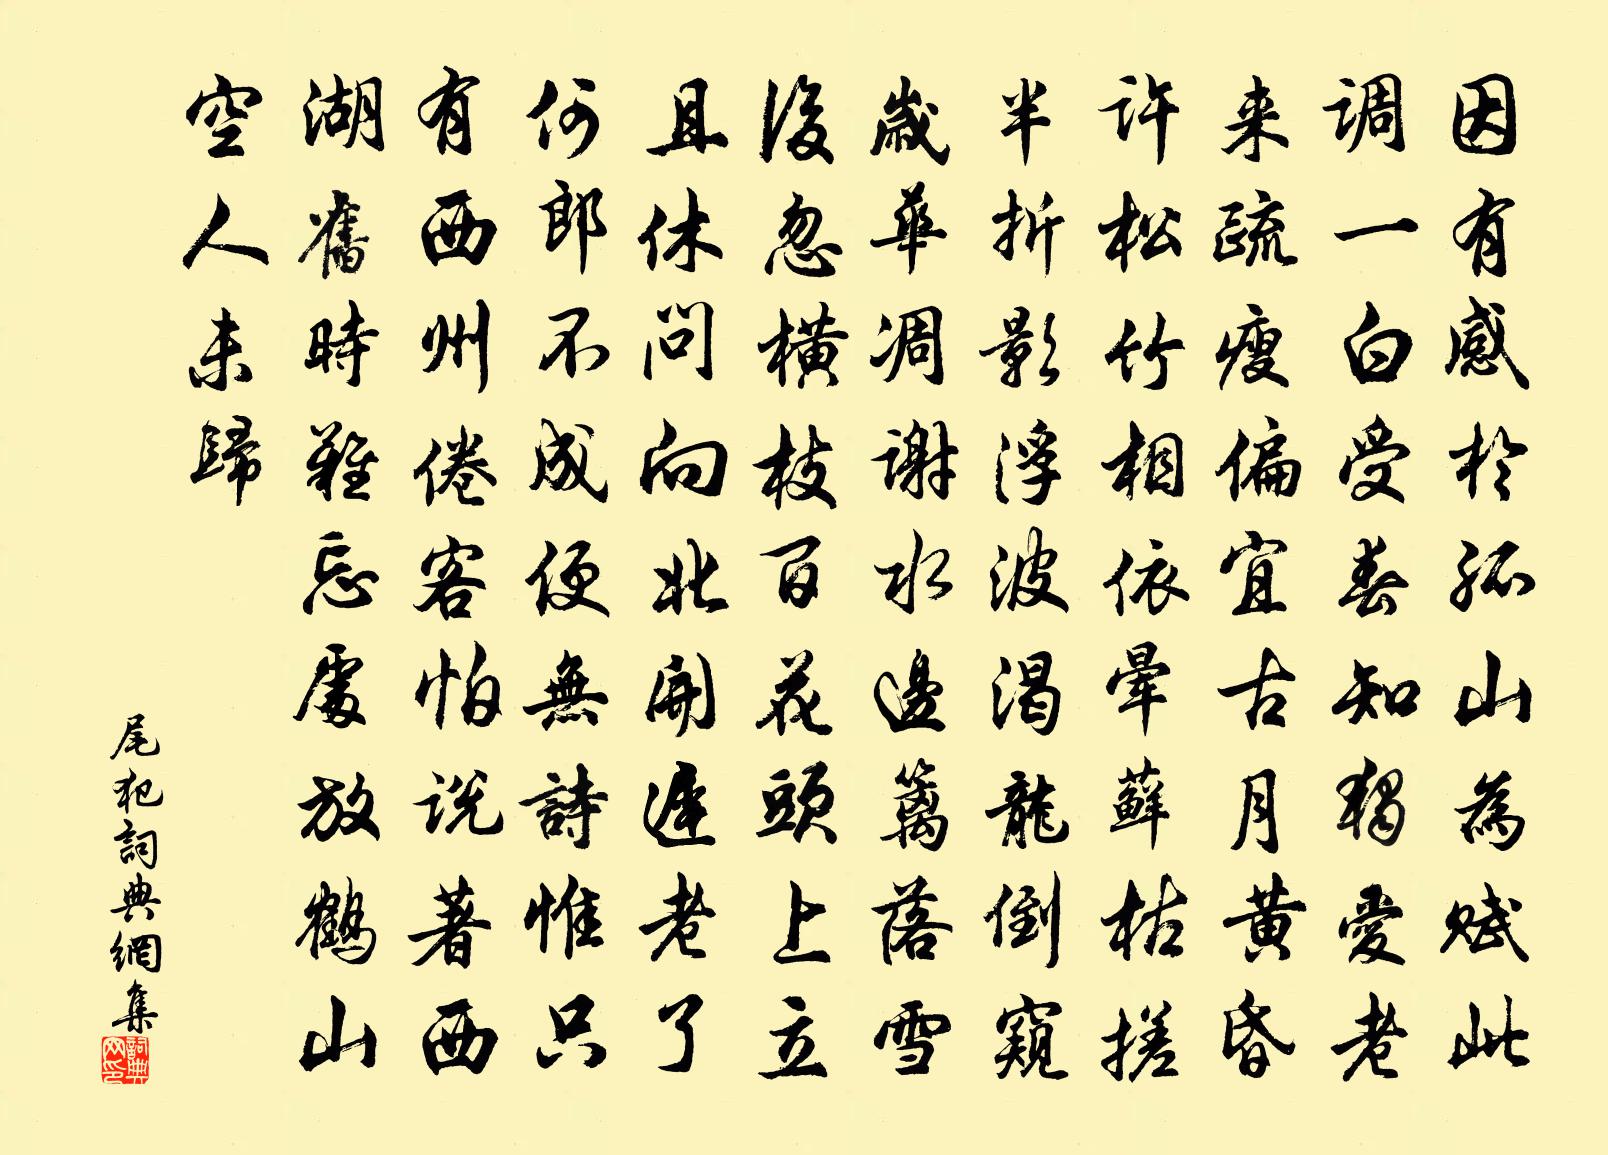 因有感於孤山為赋此
调一白受春知獨愛老
来疏瘦偏宜古月黄昏
许松竹相依暈蘚枯搓
半折影浮波渴龍倒窺
歲華凋谢水邊篱落雪
後忽横枝百花頭上立
且休問向北開遲老了
何郎不成便無詩惟只
有西州倦客怕说著西
湖舊時難忘處放鶴山
空人未歸
尾犯詞典網集
詞典网印